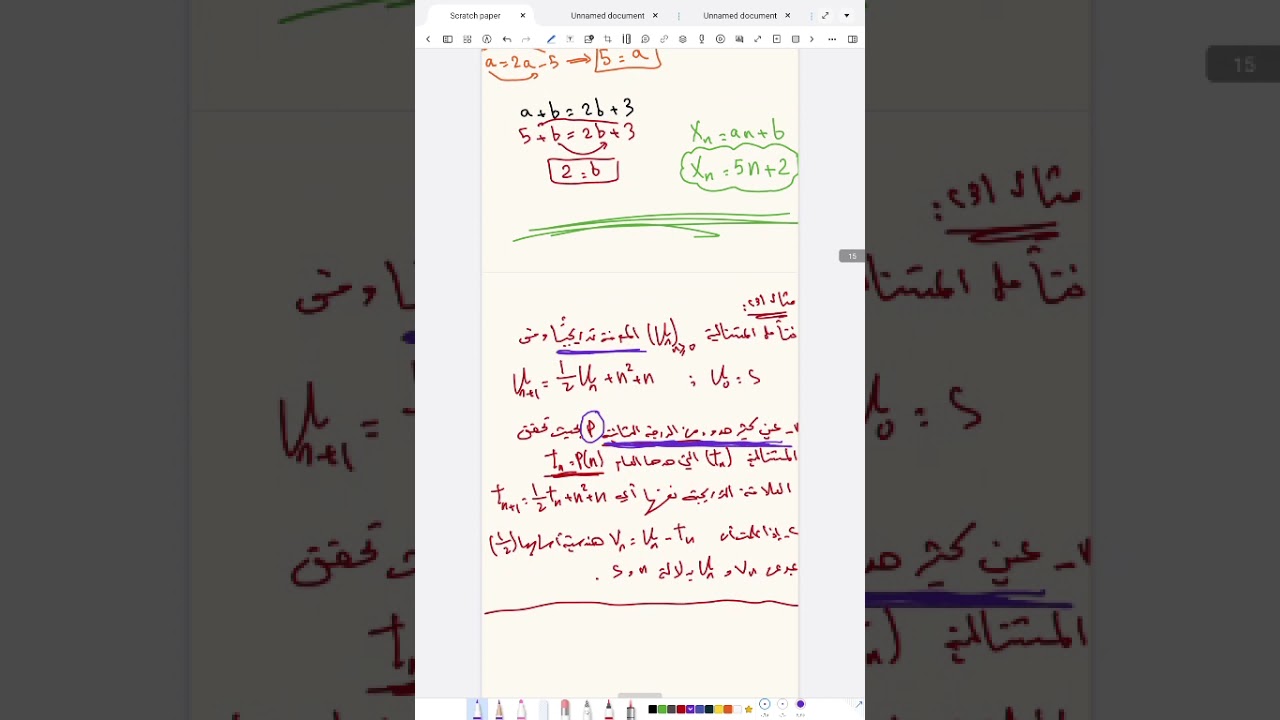 Scratch paper Unnamed document Unnamed document
a = 2a - 5 ⟹ 5 = a
a + b = 2b + 3
5 + b = 2b + 3
2 = b
Xₙ = an + b
Xₙ = 5n + 2
15
مثال
نتأمل المتتالية (Uₙ)ₙ≥₀ المعرفة تدريجياً وفق
Uₙ₊₁ = 1/2 Uₙ + n² + n ; U₀ = S
عين كثير حدود من الدرجة الثانية P بحيث تحقق
المتتالية (tₙ) التي حدها العام tₙ = P(n)
العلاقة التدريجية نفسها أي tₙ₊₁ = 1/2 tₙ + n² + n
إذا علمت أن Vₙ = Uₙ - tₙ هندسية أساسها (1/2)
Vₙ و Uₙ بدلالة n و S .